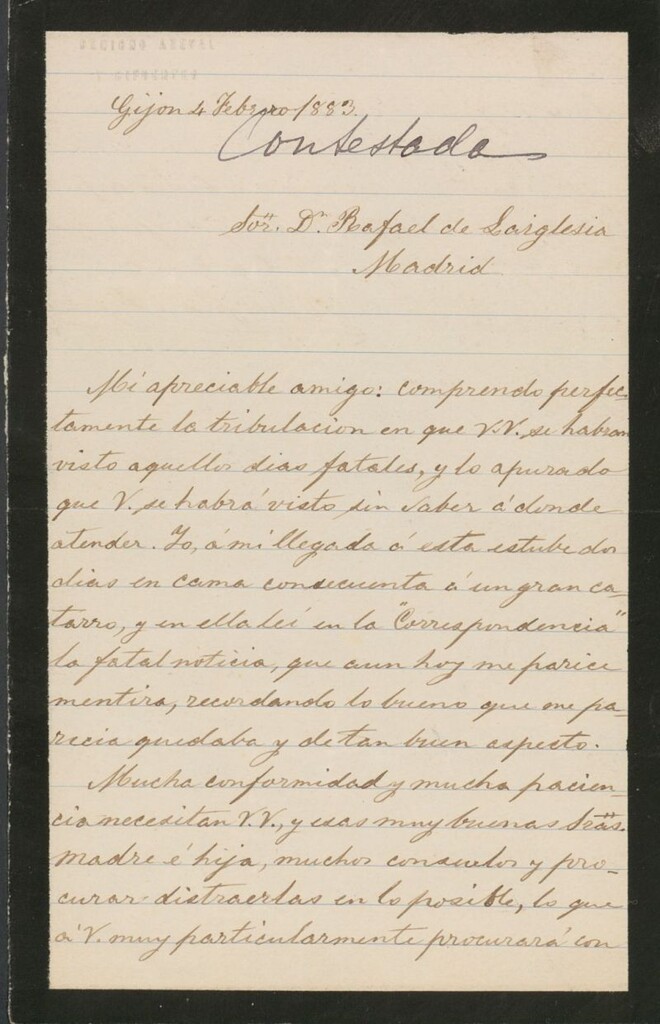 Gijon 4 Febrero 1883.
Contestada
Sor. Dn. Rafael de Laiglesia
Madrid
Mi apreciable amigo: comprendo perfec-
tamente la tribulacion en que V.V. se habran
visto aquellos dias fatales, y lo apurado
que V. se habrá visto sin saber á donde
atender. Yo, á mi llegada á esta estube dos
dias en cama consecuenta á un gran ca-
tarro, y en ella leí en la "Correspondencia"
la fatal noticia, que aun hoy me parice
mentira, recordando lo bueno que me pa-
recia quedaba y de tan buen aspecto.
Mucha conformidad y mucha pacien-
cia necesitan V.V., y esas muy buenas Sras.
madre é hija, muchos consuelos y pro-
curar distraerlas en lo posible, lo que
á V. muy particularmente procurará con